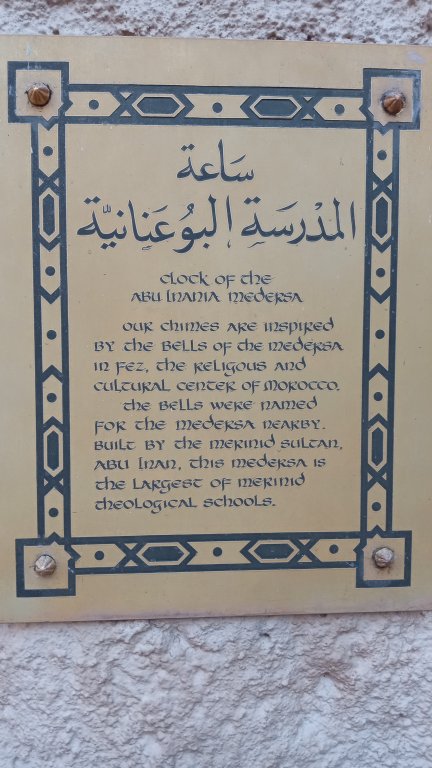 سَاعة
المَدْرَسَة البُوعَنانيّة
CLOCK OF THE
ABU INANIA MEDERSA
OUR CHIMES ARE INSPIRED
BY THE BELLS OF THE MEDERSA
IN FEZ, THE RELIGOUS AND
CULTURAL CENTER OF MOROCCO.
THE BELLS WERE NAMED
FOR THE MEDERSA NEARBY.
BUILT BY THE MERINID SULTAN,
ABU INAN, THIS MEDERSA IS
THE LARGEST OF MERINID
THEOLOGICAL SCHOOLS.